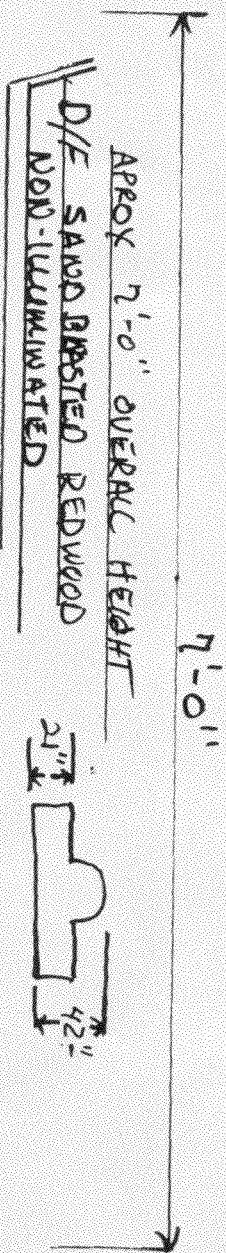 7'-0"
APROX 7'-0" OVERALL HEIGHT
D/F SANDBLASTED REDWOOD
NON-ILLUMINATED
21"
42"